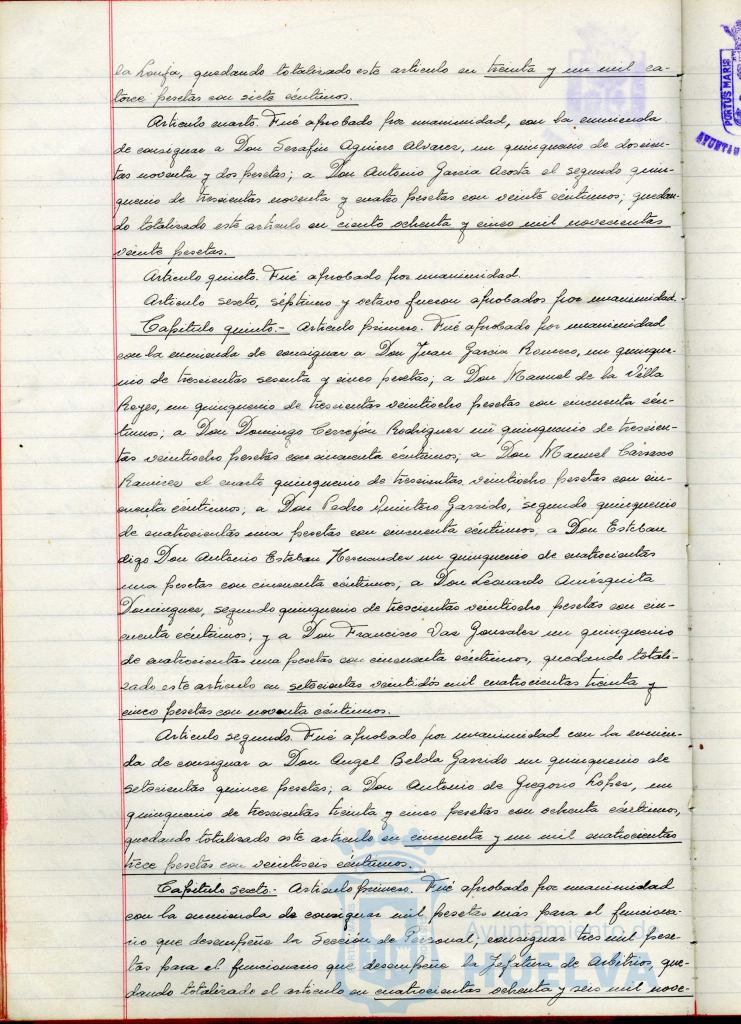 la Lonja, quedando totalizado este articulo en treinta y un mil ca-
torce pesetas con siete céntimos.
Articulo cuarto. Fué aprobado por unanimidad, con la enmienda
de consignar a Don Serafin Aguirre Alvarez, un quinquenio de doscien-
tas noventa y dos pesetas; a Don Antonio Garcia Acosta el segundo quin-
quenio de trescientas noventa y cuatro pesetas con veinte céntimos; quedan-
do totalizado este articulo en ciento ochenta y cinco mil novecientas
veinte pesetas.
Articulo quinto. Fué aprobado por unanimidad.
Articulo sexto, séptimo y octavo fueron aprobados por unanimidad.
Capitulo quinto.- Articulo primero. Fué aprobado por unanimidad
con la enmienda de consignar a Don Juan Garcia Romero, un quinque-
nio de trescientas sesenta y cinco pesetas; a Don Manuel de la Villa
Reyes, un quinquenio de trescientas veintiocho pesetas con cincuenta cén-
timos; a Don Domingo Cerrejón Rodriguez un quinquenio de trescien-
tas veintiocho pesetas con cincuenta céntimos; a Don Manuel Carrasco
Ramirez el cuarto quinquenio de trescientas veintiocho pesetas con cin-
cuenta céntimos; a Don Pedro Quintero Garrido, segundo quinquenio
de cuatrocientas una pesetas con cincuenta céntimos, a Don Esteban
digo Don Antonio Esteban Hernandez un quinquenio de cuatrocientas
una pesetas con cincuenta céntimos; a Don Leonardo Amésquita
Dominguez, segundo quinquenio de trescientas veintiocho pesetas con cin-
cuenta céntimos; y a Don Francisco Vaz Gonzalez un quinquenio
de cuatrocientas una pesetas con cincuenta céntimos, quedando totali-
zado este articulo en setecientas veintidós mil cuatrocientas treinta y
cinco pesetas con noventa céntimos.
Articulo segundo. Fué aprobado por unanimidad con la enmien-
da de consignar a Don Angel Belda Garrido un quinquenio de
setecientas quince pesetas; a Don Antonio de Gregorio Lopez, un
quinquenio de trescientas treinta y cinco pesetas con ochenta céntimos,
quedando totalizado este articulo en cincuenta y un mil cuatrocientas
trece pesetas con veintiseis céntimos.
Capitulo sexto.- Articulo primero. Fué aprobado por unanimidad
con la enmienda de consignar mil pesetas más para el funciona-
rio que desempeñe la Sección de Personal; consignar tres mil pese-
tas para el funcionario que desempeñe la Jefatura de Arbitrios, que-
dando totalizado el articulo en cuatrocientas ochenta y seis mil nove-
PORTUS MARIS
AYUNTAM
Ayuntamiento de
HUELVA